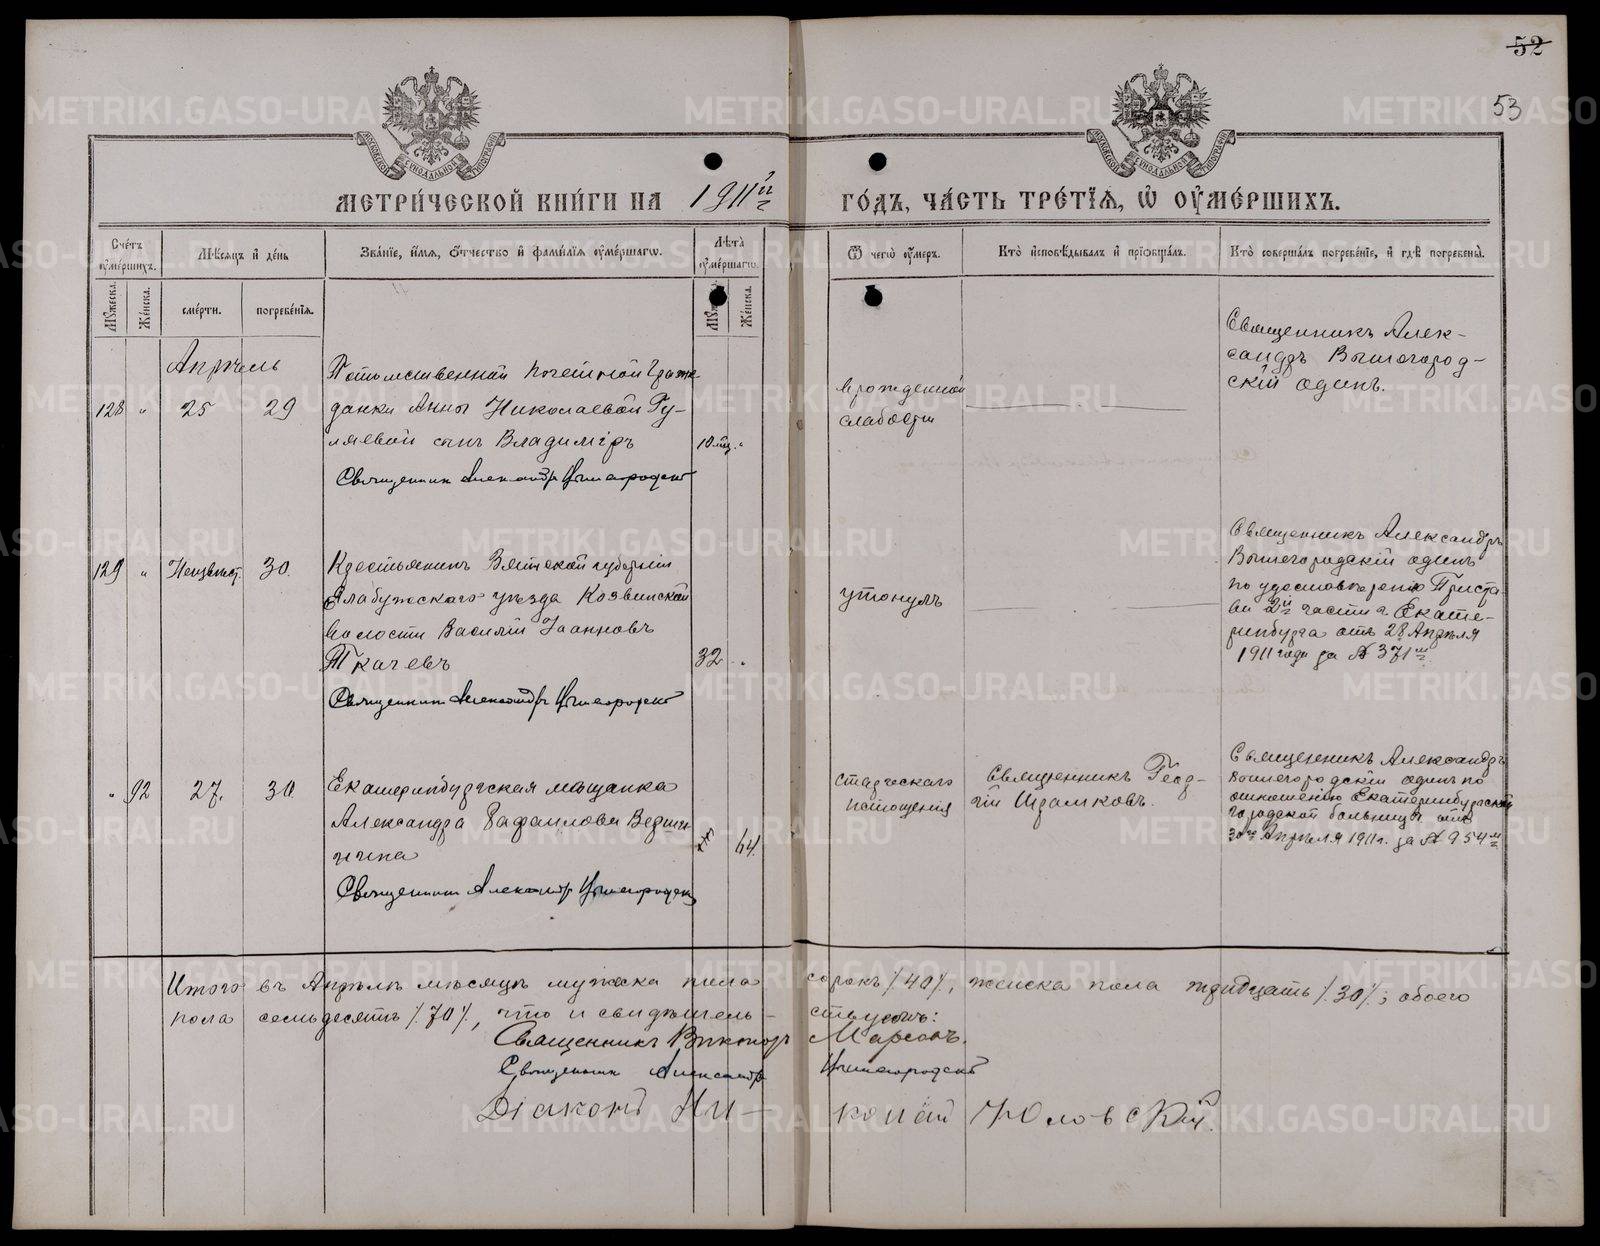 52
53
МЕТРИ́ЧЕСКОЙ КНИ́ГИ НА 1911й ГО́ДЪ, ЧА́СТЬ ТРЕ́ТЇѦ, Ѡ ОУМЕ́РШИХЪ.
Сче́тъ оуме́ршихъ.
Мѣ́сѧцъ и де́нь
Зва́нїе, и́мѧ, о́тчество и фами́лїѧ оуме́ршагѡ.
Лѣ́та оуме́ршагѡ.
Ѿ чегѡ̀ оу́меръ.
Кто̀ исповѣ́дывалъ и прїѡбща́лъ.
Кто̀ соверша́лъ погребе́нїе, и гдѣ̀ погребены̀.
Мꙋ́жеска.
Же́нска.
сме́рти.
погребе́нїѧ.
Же́нска.
Апрѣль
128 " 25 29
Потомственной почетной граж-
данки Анны Николаевой Гу-
ляевой сынъ Владиміръ
10 мц. "
Священник Александр Вышегородский
врожденной
слабости
Священникъ Алек-
сандръ Вышегород-
скій одинъ.
129 " Неизвѣст. 30.
Крестьянинъ Вятской губерніи
Елабужскаго уѣзда Козвинской
волости Василій Іоанновъ
Ткачевъ
32 "
Священник Александр Вышегородский
утонулъ
Священникъ Александръ
Вышегородскій одинъ
по удостовѣренію Приста-
ва 2й части г. Екате-
ринбурга отъ 28 Апрѣля
1911 года за № 371м
" 92 27. 30
Екатеринбургская мѣщанка
Александра Рафаилова
64.
Священник Александр Вышегородский
старческаго
истощенія
Священникъ Геор-
гій Израмковъ.
Священникъ Александръ
Вышегородскій одинъ по
отношенію Екатеринбургской
городской больницы отъ
30го Апрѣля 1911 г. за № 954м
Итого въ Апрѣлѣ мѣсяцѣ мужеска пола сорокъ /40/, женска пола тридцать /30/; обоего
пола семьдесятъ /70/, что и свидѣтель-ствуютъ:
Священникъ Викторъ
Священник Александр Вышегородский
Діаконъ Ни-колай